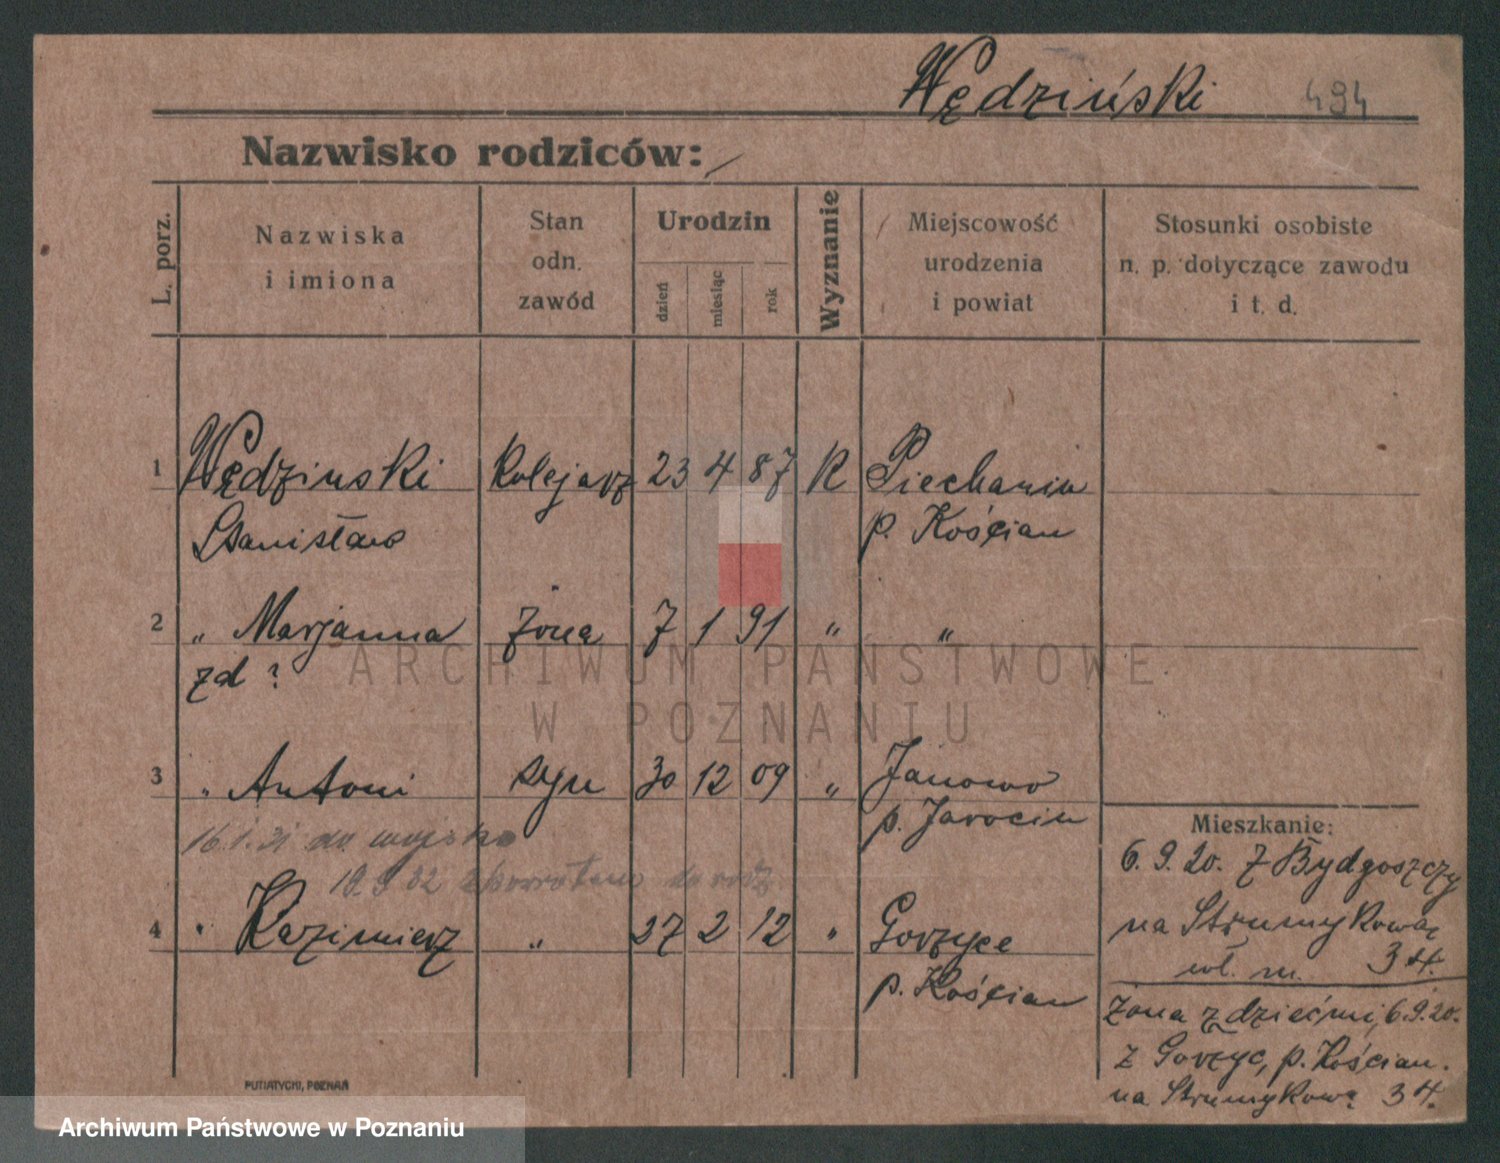 Wędziński 494
Nazwisko rodziców:
L. porz.
Nazwiska
i imiona
Stan
odn.
zawód
Urodzin
dzień
miesiąc
rok
Wyznanie
Miejscowość
urodzenia
i powiat
Stosunki osobiste
n. p. dotyczące zawodu
i t. d.
1 Wędzinski kolejarz 23 4 87 R Piechanin
Stanisław p. Kościan
2 „ Marjanna żona 7 1 91 „ „
zd ?
3 „ Antoni syn 30 12 09 „ Janowo
p. Jarocin
16.1.31 do wojska
19.9.32 zpowrotem do rodz.
4 „ Kazimierz „ 27 2 12 „ Gorzyce
p. Kościan
Mieszkanie:
6.9.20. z Bydgoszczy
na Strumykową
wł. m. 34.
żona z dziećmi, 6.9.20.
z Gorzyc, p. Kościan.
na Strumykową 34.
PUTIATYCKI, POZNAŃ
ARCHIWUM PAŃSTWOWE
W POZNANIU
Archiwum Państwowe w Poznaniu